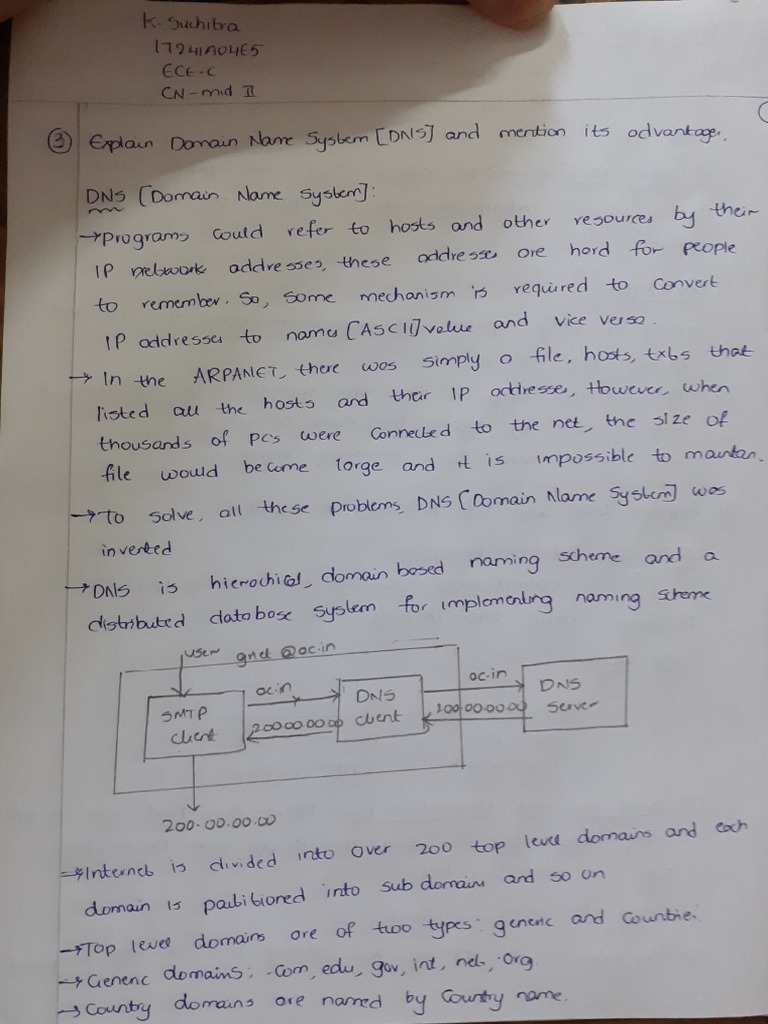 K. Suchitra
17241A04E5
ECE-C
CN-mid II
③ Explain Domain Name System [DNS] and mention its advantage.
DNS [Domain Name System]:
→ Programs could refer to hosts and other resources by their
IP network addresses, these addresses are hard for people
to remember. So, some mechanism is required to convert
IP addresses to names [ASCII] value and vice versa.
→ In the ARPANET, there was simply a file, hosts, txts that
listed all the hosts and their IP addresses, However, when
thousands of pcs were connected to the net, the size of
file would become large and it is impossible to maintan.
→ To solve, all these problems, DNS [Domain Name System] was
invented
→ DNS is hierachical, domain based naming scheme and a
distributed database system for implementing naming scheme
user
@ac.in
SMTP
client
ac.in
200.00.00.00
DNS
client
ac.in
200.00.00.00
DNS
Server
200.00.00.00
→ Internet is divided into over 200 top level domains and each
domain is partitioned into sub domains and so on
→ Top level domains are of two types: generic and countries.
→ Generic domains: .com, edu, gov, int, net, .org.
→ Country domains are named by Country name.